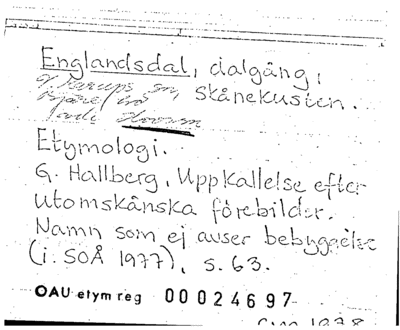 Englandsdal, dalgång,
sn, Skånekusten.
Etymologi.
G. Hallberg, Uppkallelse efter
utomskånska förebilder.
Namn som ej avser bebyggelse
(i SOÅ 1977), s. 63.
OAU etymreg 00024697